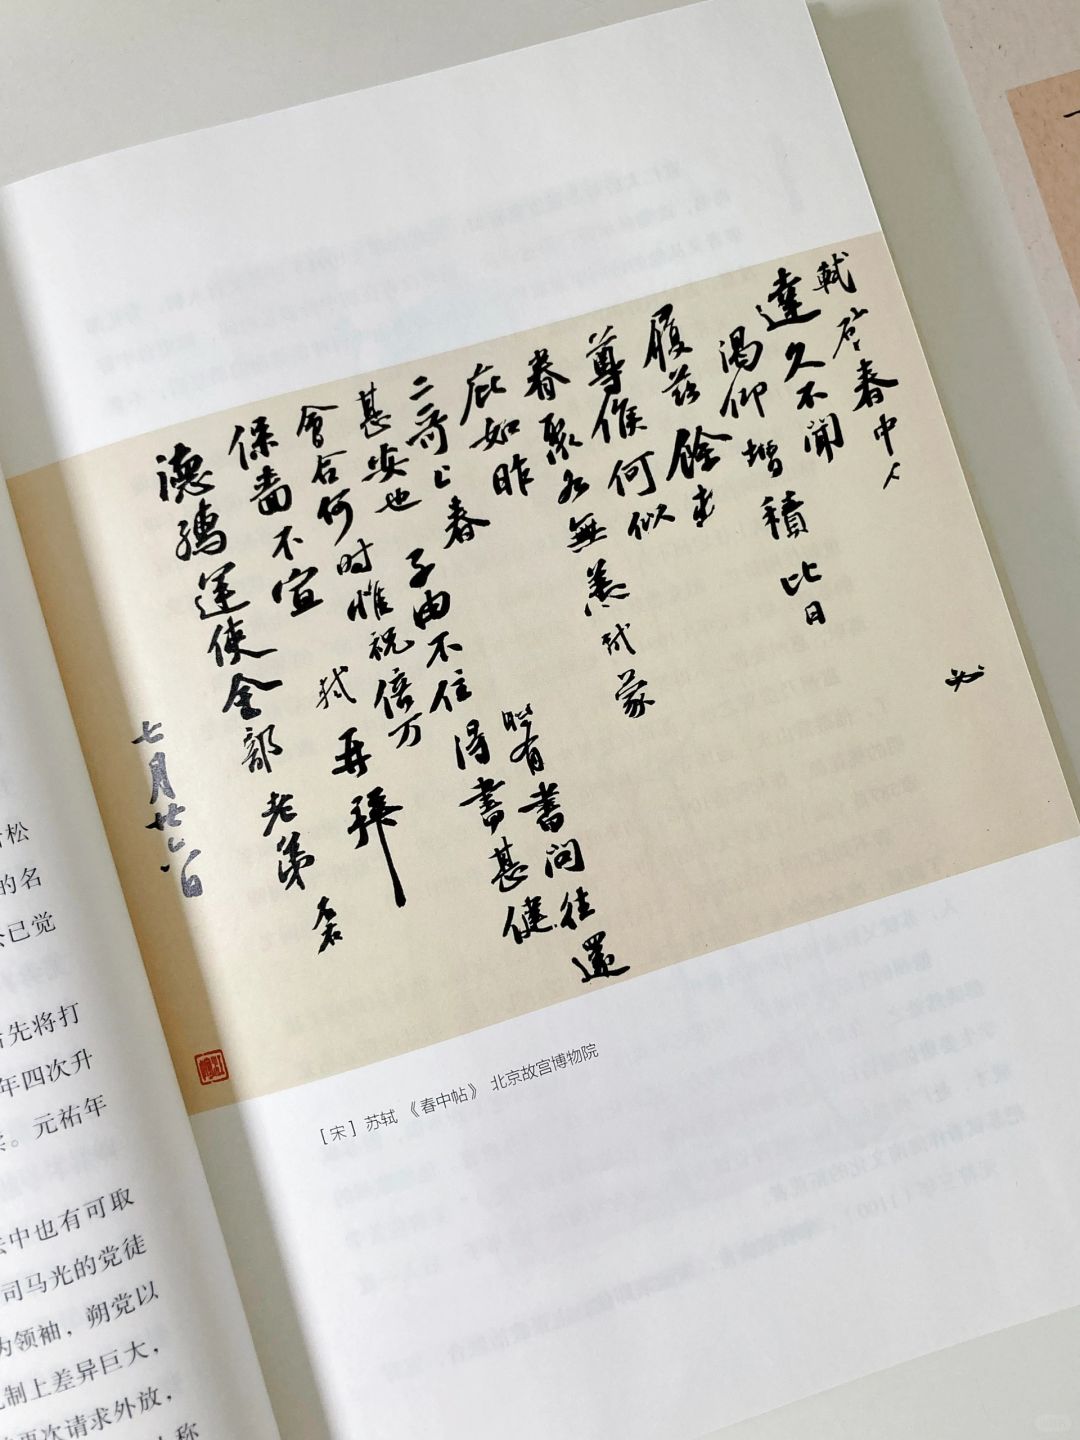 軾啓春中
達久不聞
渴仰增積比日
履茲餘
尊候何似
眷聚各無恙軾蒙
庇如昨
二哥上春 有書問往還
甚安也 子由不住得書甚健
會合何時惟祝倍万
保嗇不宣 軾再拜
德孺運使金部老弟
七月廿六日
[宋] 苏轼 《春中帖》 北京故宫博物院
松
的名
公已觉
先将打
年四次升
。元祐年
法中也有可取
司马光的党徒
为领袖，朔党以
制上差异巨大，
再次请求外放，
称